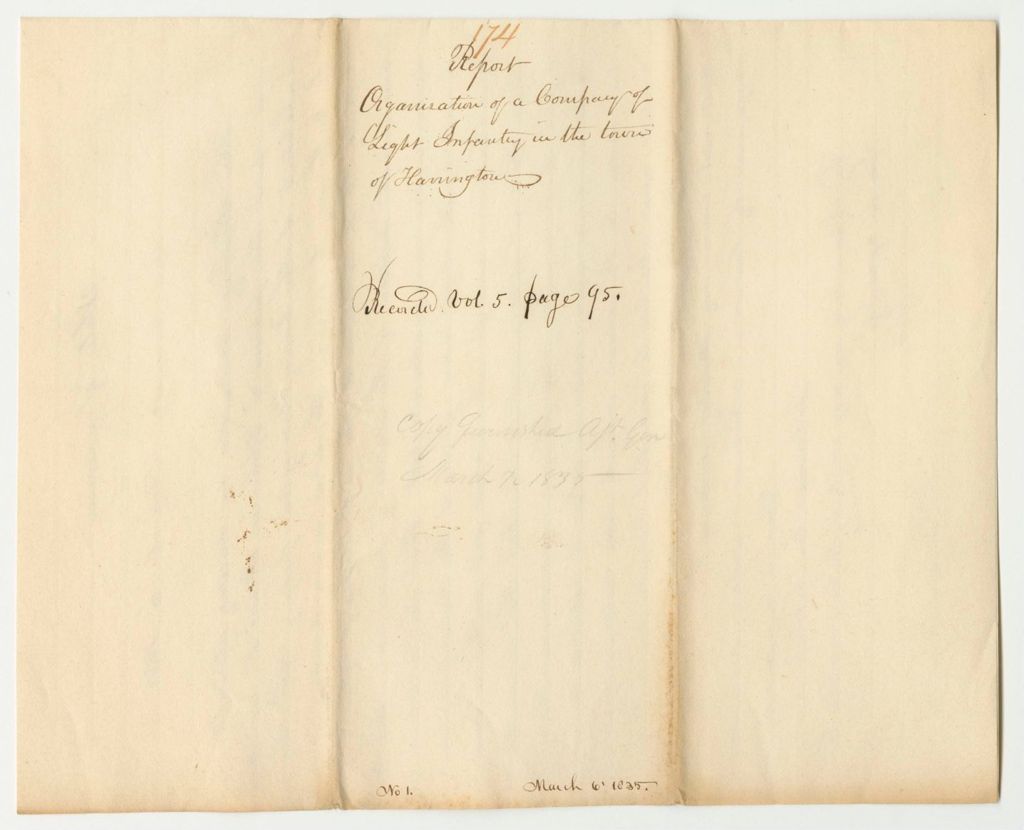 174
Report
Organisation of a Company of
Light Infantry in the town
of Harrington
Recorded. Vol. 5. page 95.
Copy furnished Ajt. Gen
March 7, 1835
No 1.
March 6' 1835.